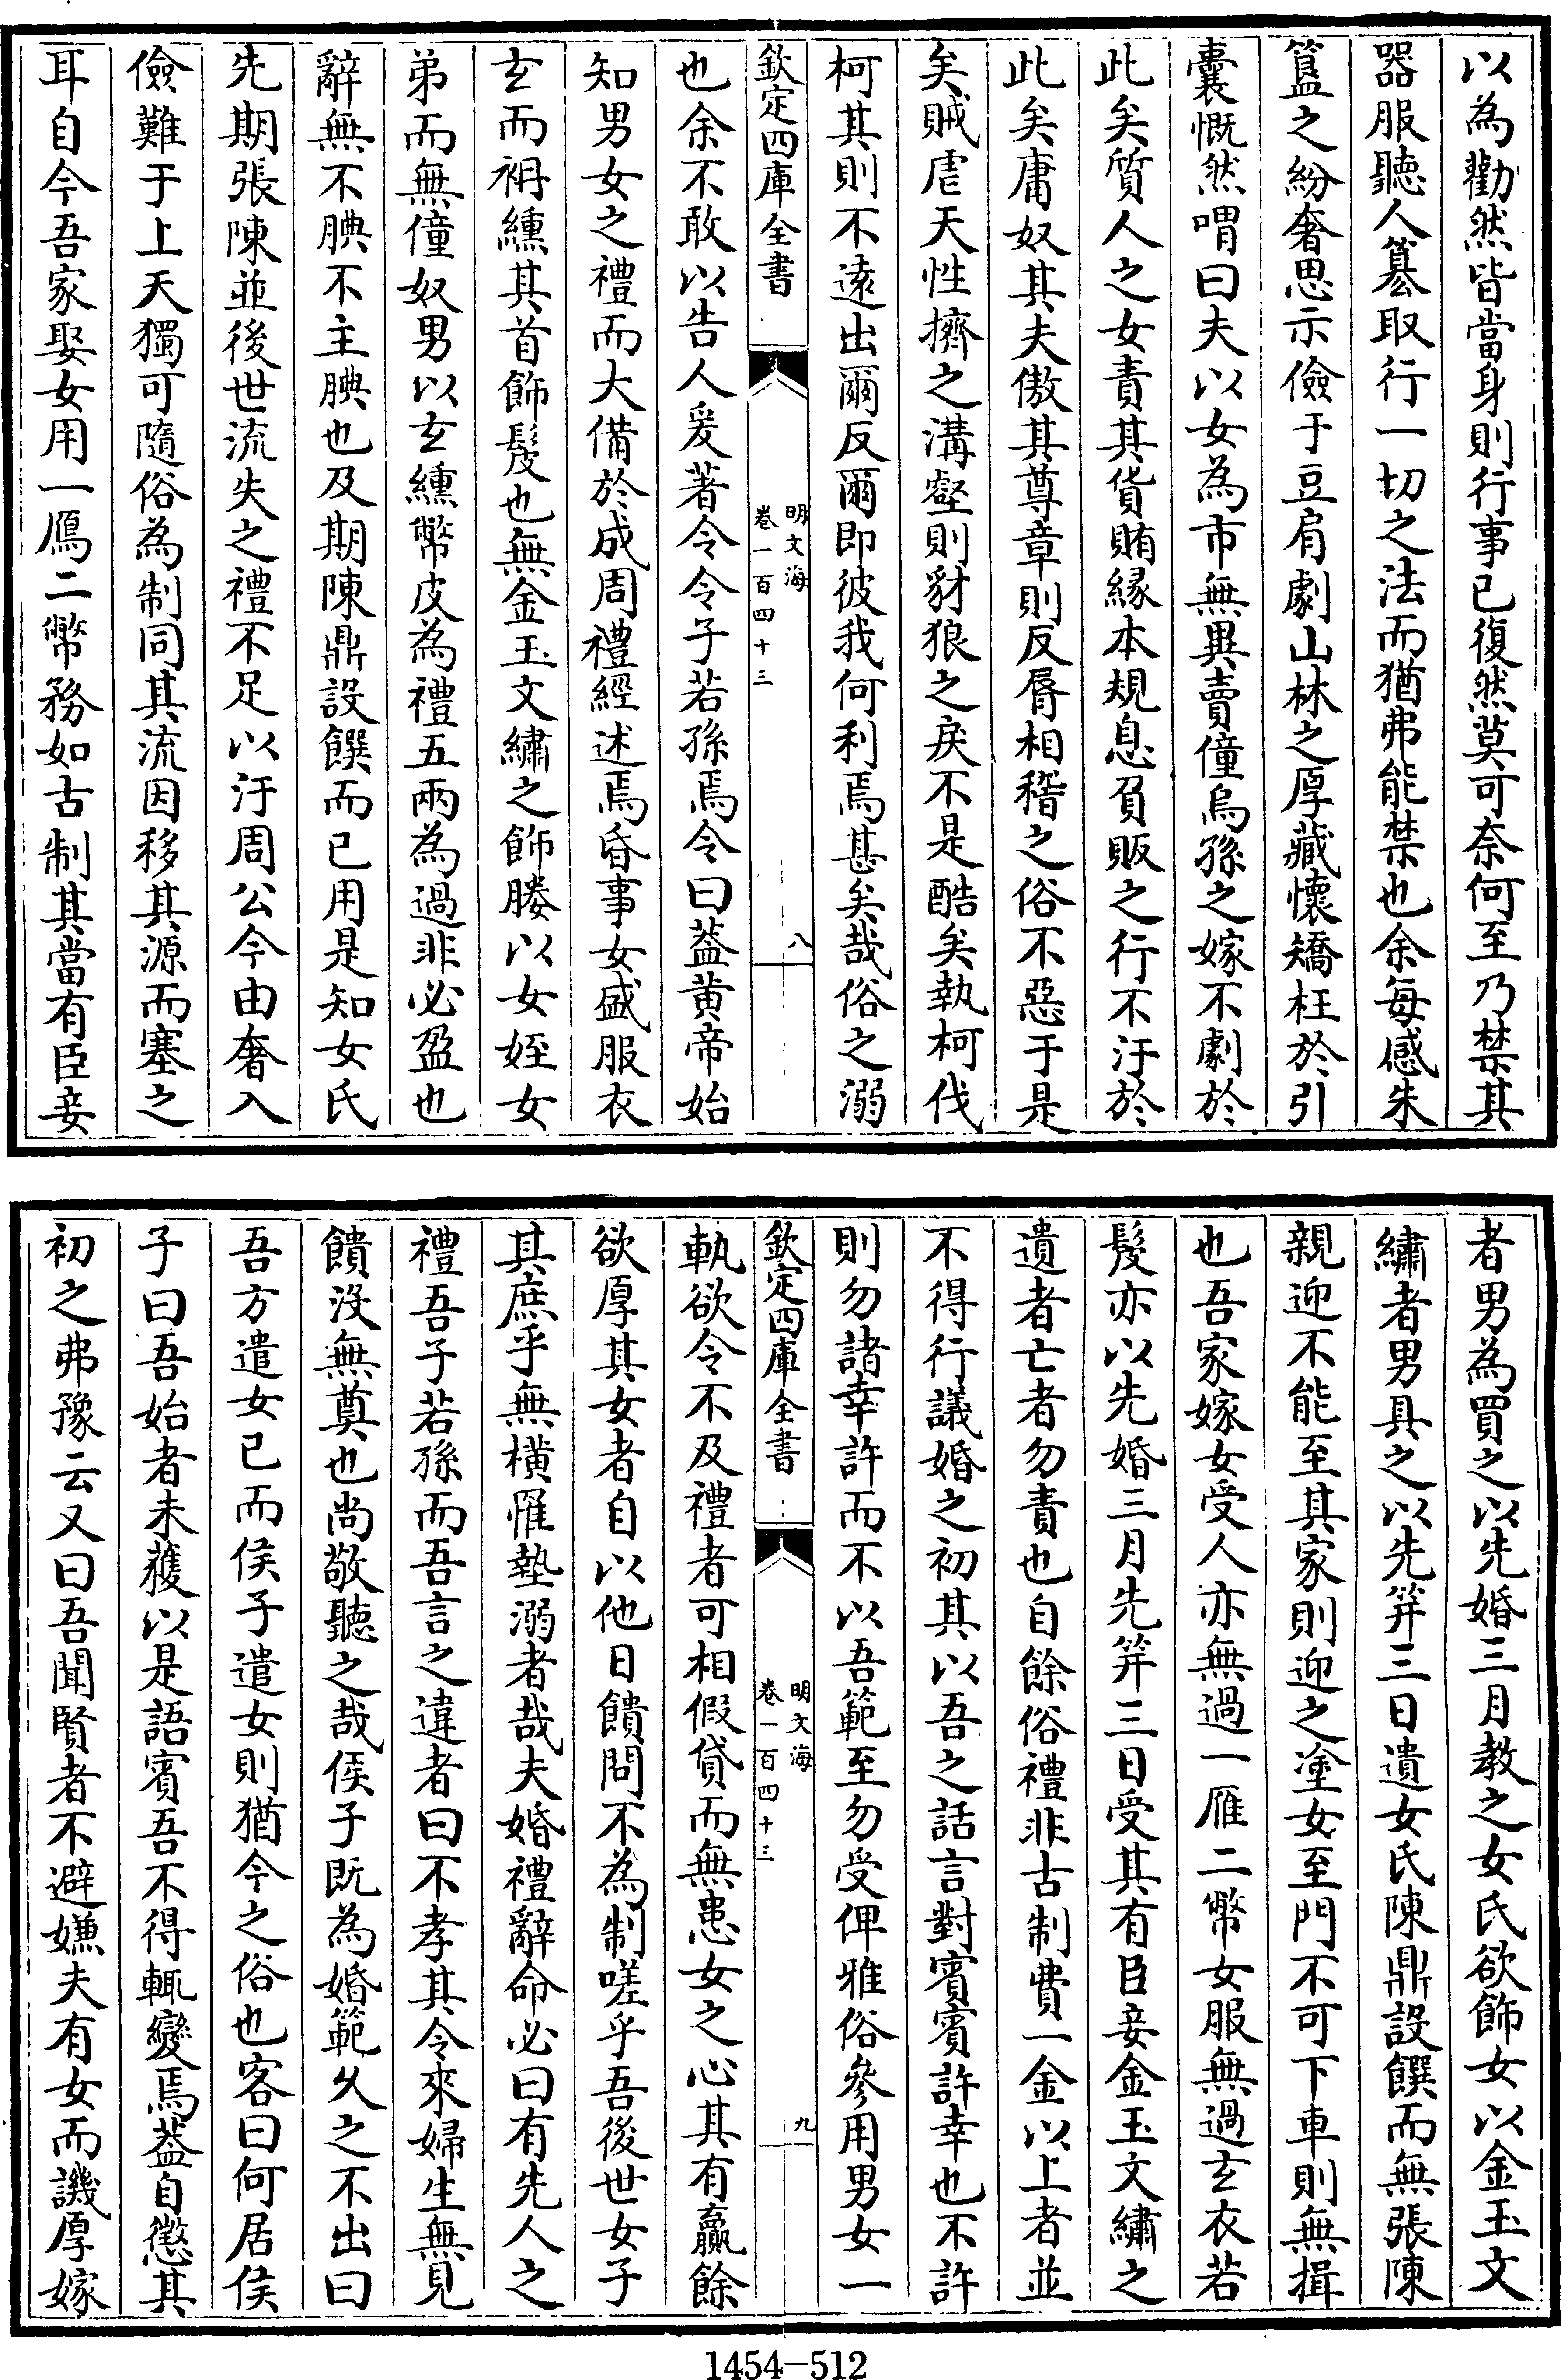 以為勸然皆當身則行事已復然莫可奈何至乃禁其
器服聽人簒取行一切之法而猶弗能禁也余每感朱
簋之紛奢思示儉于豆肩劇山林之厚藏懷矯枉於引
囊慨然喟曰夫以女為市無異賣僮烏孫之嫁不劇於
此矣質人之女責其貨賄緣本規息負販之行不汙於
此矣庸奴其夫傲其尊章則反脣相稽之俗不惡于是
矣賊虐天性擠之溝壑則豺狼之戾不是酷矣執柯伐
柯其則不遠出爾反爾即彼我何利焉甚矣哉俗之溺
欽定四庫全書
明文海
卷一百四十三
八
也余不敢以告人爰著令令子若孫焉令曰葢黄帝始
知男女之禮而大備於成周禮經述焉昏事女盛服衣
玄而袡纁其首飾髲也無金玉文繡之飾媵以女姪女
弟而無僮奴男以玄纁幣皮為禮五兩為過非必盈也
辭無不腆不主腆也及期陳鼎設饌而已用是知女氏
先期張陳並後世流失之禮不足以汙周公今由奢入
儉難于上天獨可隨俗為制同其流因移其源而塞之
耳自今吾家娶女用一鴈二幣務如古制其當有臣妾
者男為買之以先婚三月教之女氏欲飾女以金玉文
繡者男具之以先笄三日遺女氏陳鼎設饌而無張陳
親迎不能至其家則迎之塗女至門不可下車則無揖
也吾家嫁女受人亦無過一雁二幣女服無過玄衣若
髲亦以先婚三月先笄三日受其有臣妾金玉文繡之
遺者亡者勿責也自餘俗禮非古制費一金以上者並
不得行議婚之初其以吾之話言對賓賓許幸也不許
則勿諸幸許而不以吾範至勿受俾雅俗參用男女一
欽定四庫全書
明文海
卷一百四十三
九
軌欲令不及禮者可相假貸而無患女之心其有羸餘
欲厚其女者自以他日饋問不為制嗟乎吾後世女子
其庶乎無横罹墊溺者哉夫婚禮辭命必曰有先人之
禮吾子若孫而吾言之違者曰不孝其令來婦生無見
饋沒無奠也尚敬聽之哉侯子既為婚範久之不出曰
吾方遣女已而侯子遣女則猶今之俗也客曰何居侯
子曰吾始者未獲以是語賓吾不得輒變焉葢自懲其
初之弗豫云又曰吾聞賢者不避嫌夫有女而譏厚嫁
1454—512